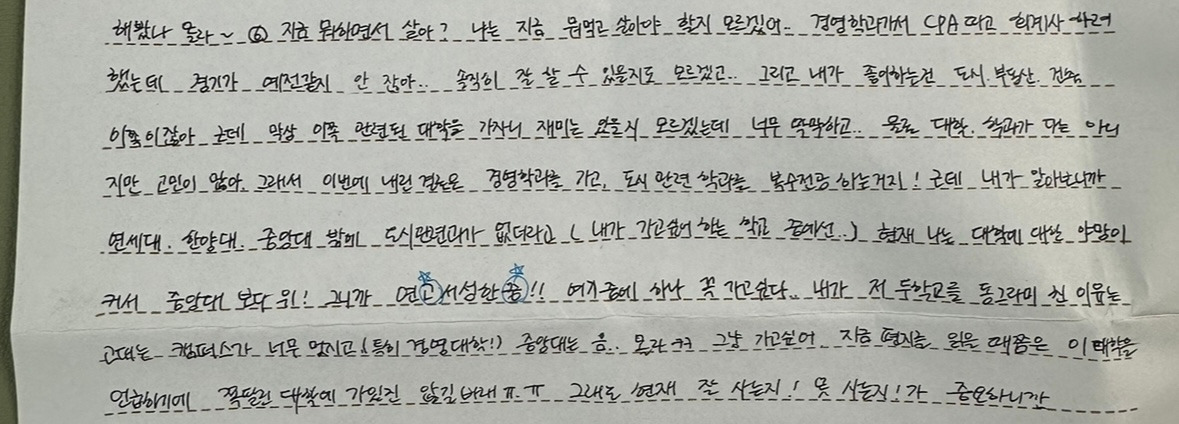 해봤나 몰라~ ⑥ 지금 뭐하면서 살아? 나는 지금 뭐먹고 살아야 할지 모르겠어.. 경영학과가서 CPA 따고 회계사 하려
했는데 경기가 예전같지 안 잖아.. 솔직히 잘 할 수 있을지도 모르겠고.. 그리고 내가 좋아하는건 도시.부동산.건축
이쪽이잖아 근데 막상 이쪽 관련된 대학을 가자니 재미는 있을지 모르겠는데 너무 막막하고.. 물론 대학.학과가 다는 아니
지만 고민이 많아. 그래서 이번에 내린 결론은 경영학과를 가고, 도시 관련 학과를 복수전공 하는거지! 근데 내가 알아보니까
연세대. 한양대. 중앙대 밖에 도시관련과가 없더라고 (내가 가고싶어 하는 학교 중에선..) 현재 나는 대학에 대한 야망이
커서 중앙대 보다 위! 그니까 연고서성한중!! 여기중에 하나 꼭 가고싶다.. 내가 저 두학교를 동그라미 친 이유는
고대는 캠퍼스가 너무 멋지고(특히 경영대학!) 중앙대는 음.. 몰라ㅋㅋ 그냥 가고싶어 지금 편지를 읽을 때쯤은 이 대학을
언급하기에 쪽팔린 대학에 가있진 않길바래ㅠ.ㅠ 그래도 현재 잘 사는지! 못 사는지!가 중요하니깐